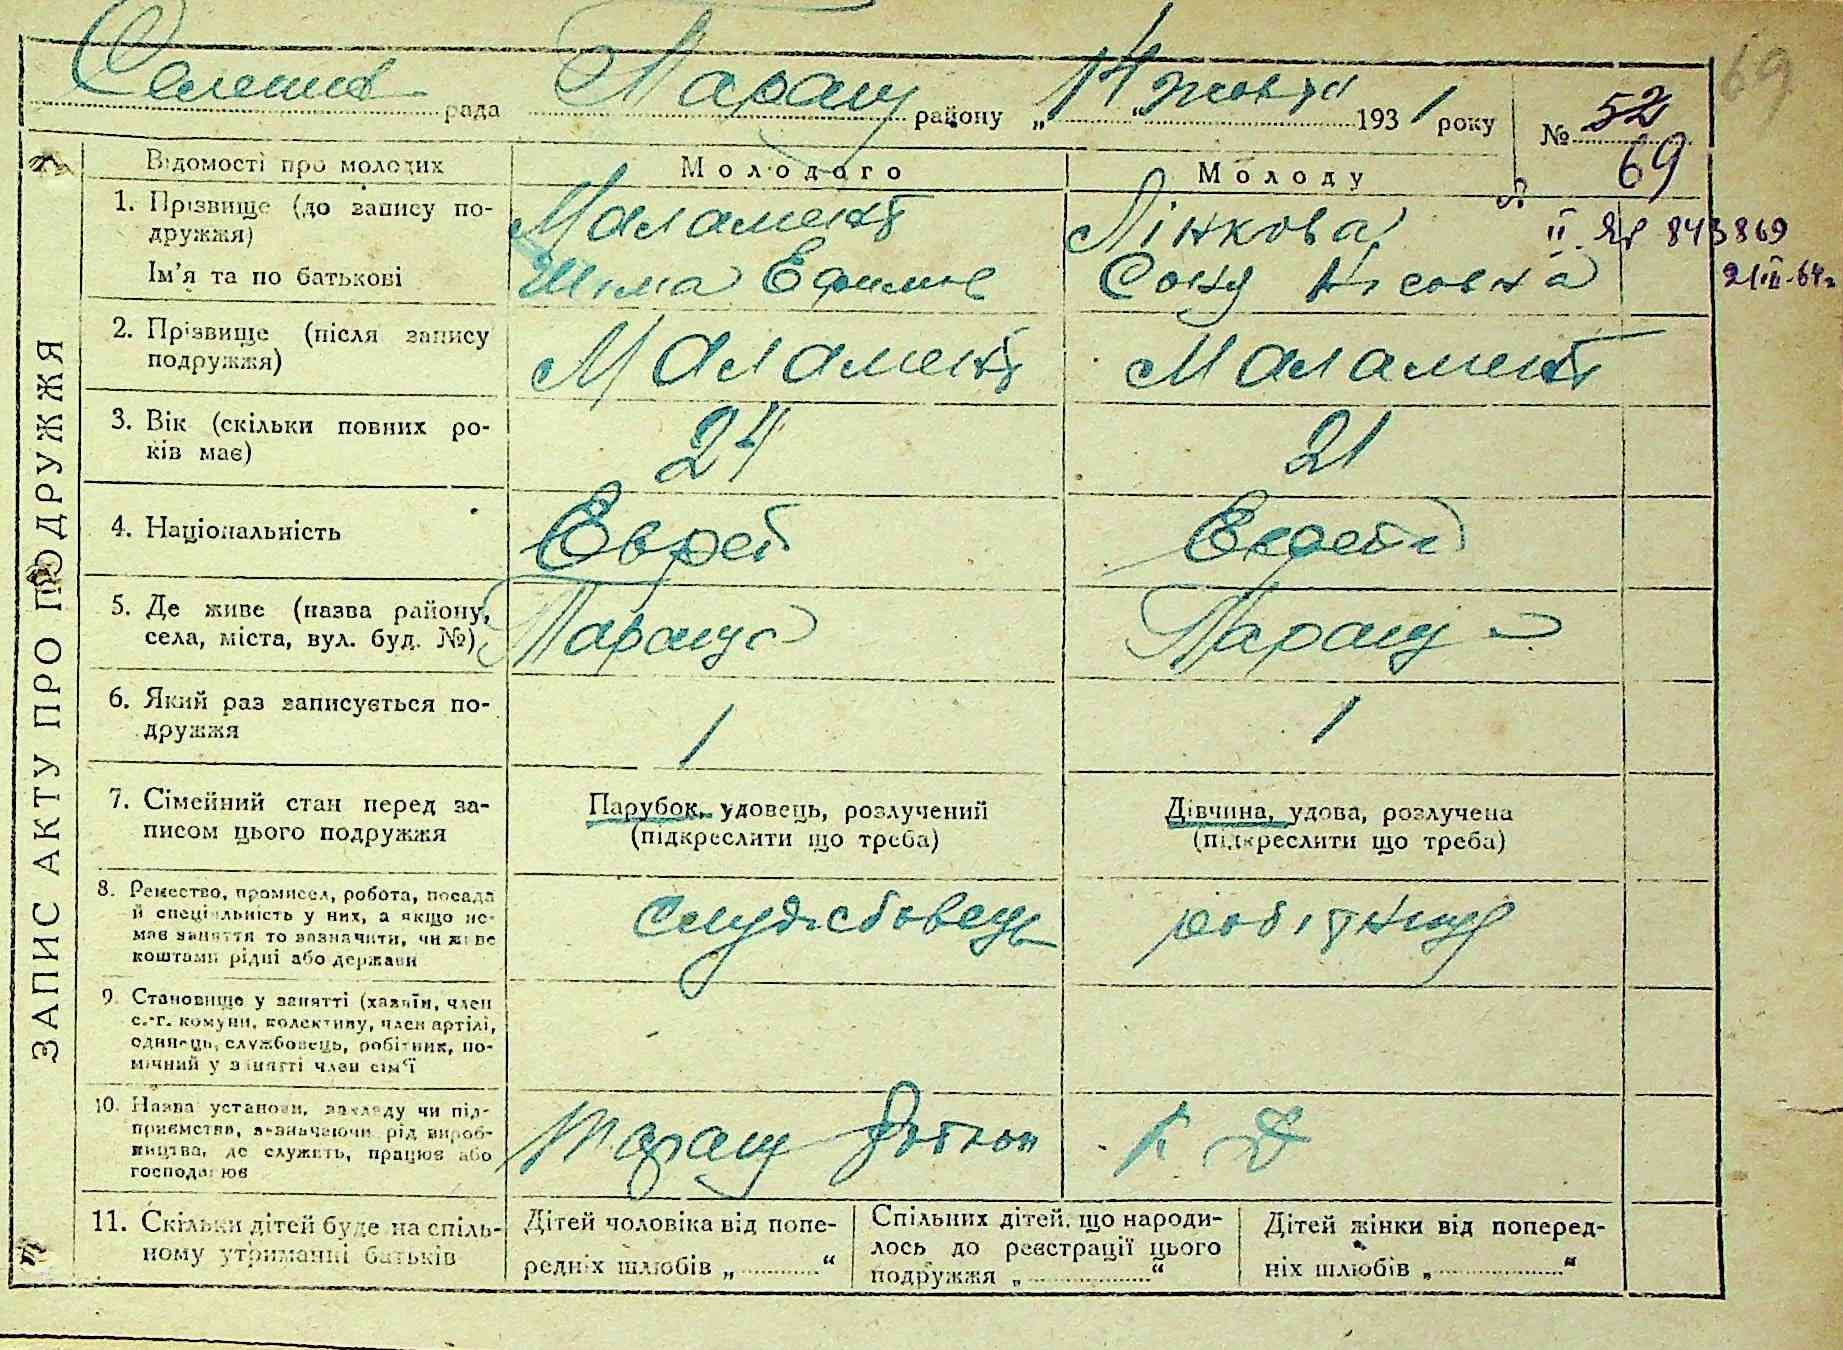 69
Селищ рада Таращ району „14" жовтн 1931 року № 52
69
Відомості про молодих
Молодого
Молоду
1. Прізвище (до запису подружжя)
Маламент
Лінкова
II 843869
Ім'я та по батькові
Шлема Ефимов
Соня
21.III-64г
2. Прізвище (після запису подружжя)
Маламент
Маламент
3. Вік (скільки повних років має)
24
21
4. Національність
Еврей
Еврей
5. Де живе (назва району, села, міста, вул. буд. №)
Тараща
Тараща
6. Який раз записується подружжя
1
1
7. Сімейний стан перед записом цього подружжя
Парубок, удовець, розлучений
(підкреслити що треба)
Дівчина, удова, розлучена
(підкреслити що треба)
8. Ремество, промисел, робота, посада
й спеціяльність у них, а якщо немає заняття то зазначити, чи живе
коштами рідні або держави
службовець
робітниця
9. Становище у занятті (хазяїн, член
с.-г. комуни, колективу, член артілі,
одинець, службовець, робітник, помічний у занятті член сім'ї
10. Назва установи, закладу чи підприємства, зазначаючи рід виробництва, де служить, працює або
господарює
Таращ
11. Скільки дітей буде на спільному утриманні батьків
Дітей чоловіка від попередніх шлюбів „ "
Спільних дітей, що народилось до реєстрації цього
подружжя „ "
Дітей жінки від попередніх шлюбів „ "
ЗАПИС АКТУ ПРО ПОДРУЖЖЯ